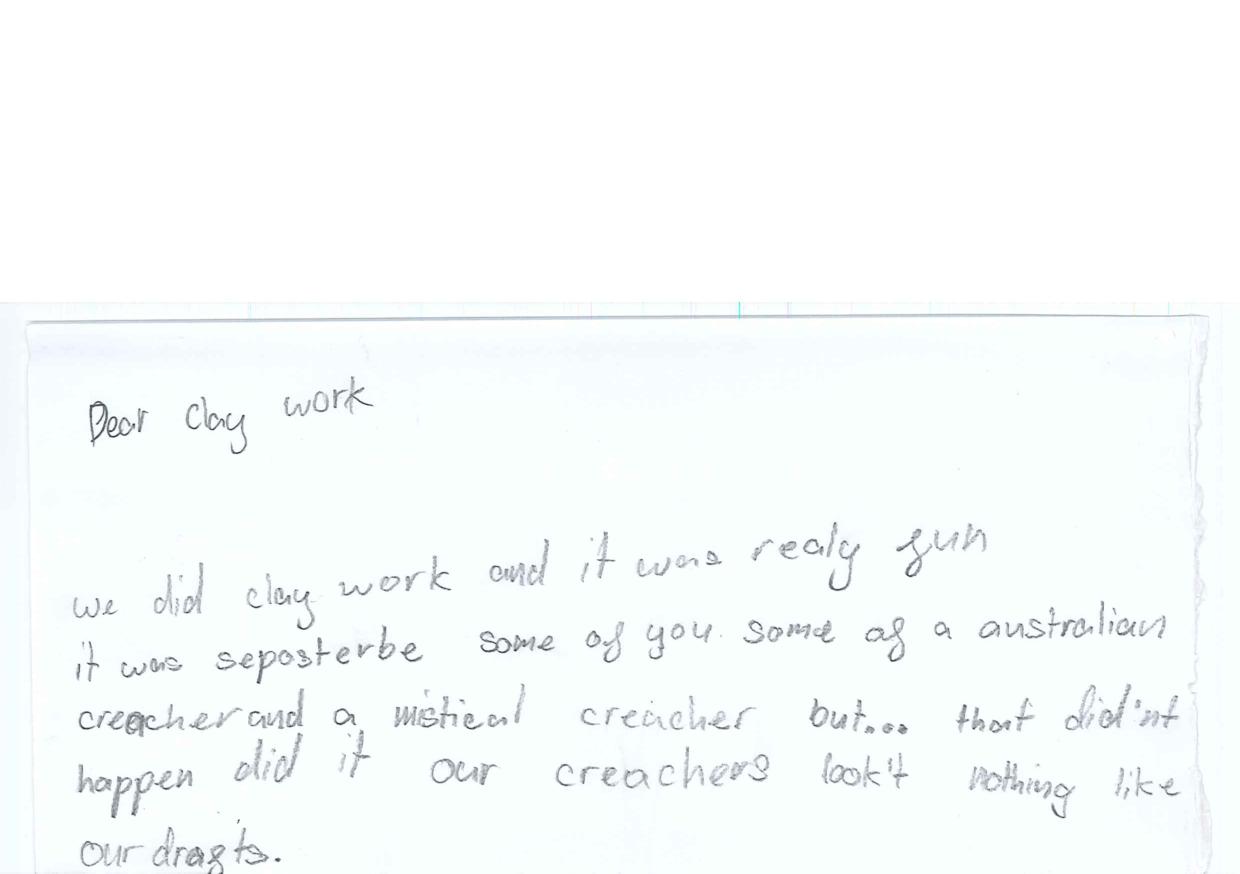 Dear clay work
we did clay work and it was realy fun
it was seposterbe some of you some of a australian
creacher and a mistical creacher but... that did'nt
happen did it our creachers look't nothing like
our drafts.